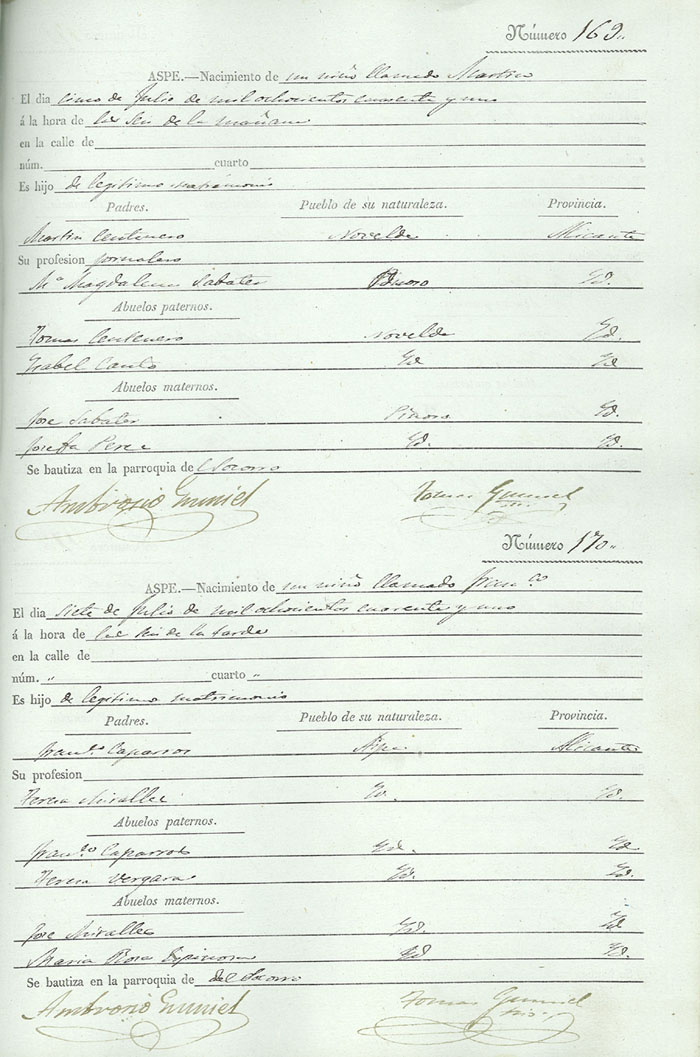 Número 169..
ASPE.—Nacimiento de un niño llamado Martin
El dia cinco de Julio de mil ochocientos cuarenta y uno
á la hora de las seis de la mañana
en la calle de
núm. cuarto
Es hijo de legitimo matrimonio
Padres. Pueblo de su naturaleza. Provincia.
Martin Centenero Novelda Alicante
Su profesion jornalero
Mª Magdalena Sabater Pinoso Yd.
Abuelos paternos.
Tomas Centenero Novelda Yd.
Ysabel Canto Yd Yd
Abuelos maternos.
Jose Sabater Pinoso Yd.
Josefa Perez Yd. Yd.
Se bautiza en la parroquia de Socorro
Ambrosio Gumiel Tomas Gumiel
Número 170..
ASPE.—Nacimiento de un niño llamado Franco
El dia siete de Julio de mil ochocientos cuarenta y uno
á la hora de las seis de la tarde
en la calle de
núm. „ cuarto „
Es hijo de legitimo matrimonio
Padres. Pueblo de su naturaleza. Provincia.
Franco Caparros Aspe Alicante
Su profesion
Teresa Miralles Yd. Yd.
Abuelos paternos.
Franco Caparros Yd. Yd
Teresa Vergara Yd. Yd.
Abuelos maternos.
Jose Miralles Yd. Yd
Maria Rosa Espinosa Yd Yd.
Se bautiza en la parroquia de del Socorro
Ambrosio Gumiel Tomas Gumiel